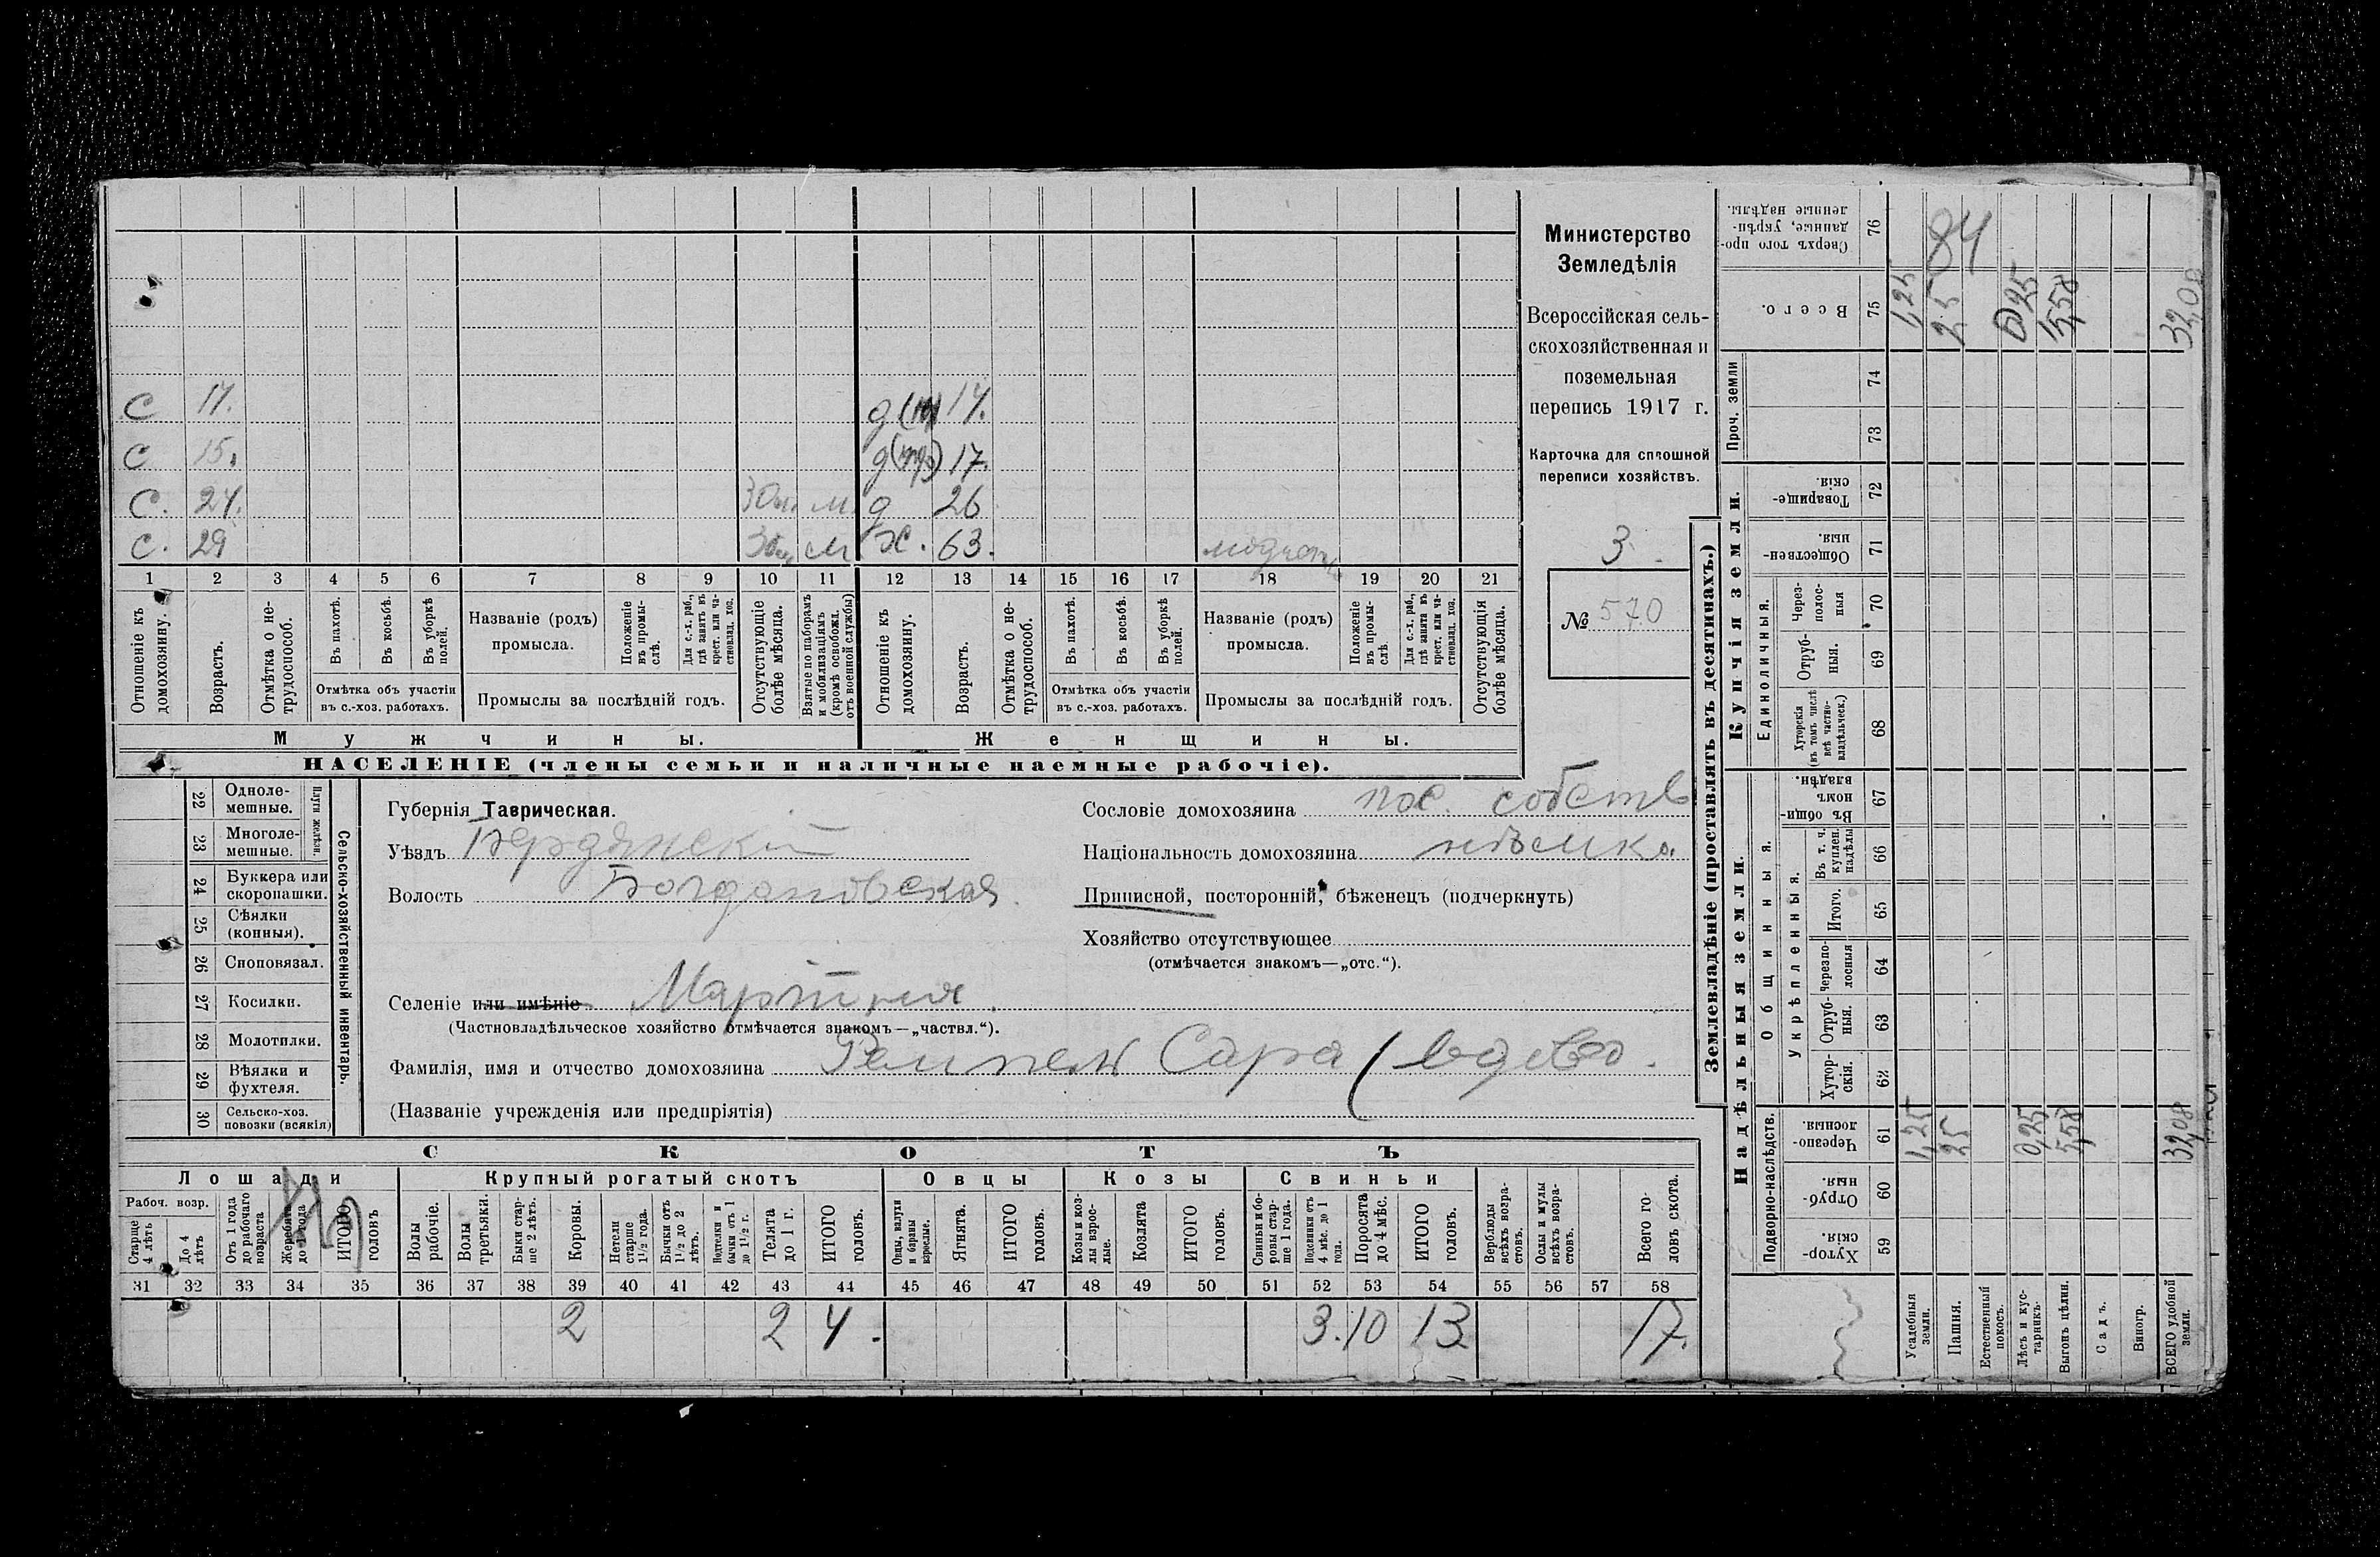 Министерство
Земледѣлія
Всероссійская сель-
скохозяйственная и
поземельная
перепись 1917 г.
Карточка для сплошной
переписи хозяйствъ.
3
№ 570
С 17. д 14.
С 15. д 17.
С. 24. м. д 26
С. 29 м ж. 63.
1 2 3 4 5 6 7 8 9 10 11 12 13 14 15 16 17 18 19 20 21
Отношеніе къ домохозяину.
Возрастъ.
Отмѣтка о не-трудоспособ.
Въ пахотѣ.
Въ косьбѣ.
Въ уборкѣ полей.
Отмѣтка объ участіи въ с.-хоз. работахъ.
Названіе (родъ) промысла.
Положеніе въ промы-слѣ.
Для с.-х. раб., гдѣ занятъ въ крест. или ча-стновлад. хоз.
Промыслы за послѣдній годъ.
Отсутствующіе болѣе мѣсяца.
Взятые по наборамъ и мобилизаціямъ (кромѣ освобожд. отъ военной службы)
Отношеніе къ домохозяину.
Возрастъ.
Отмѣтка о не-трудоспособ.
Въ пахотѣ.
Въ косьбѣ.
Въ уборкѣ полей.
Отмѣтка объ участіи въ с.-хоз. работахъ.
Названіе (родъ) промысла.
Положеніе въ промы-слѣ.
Для с.-х. раб., гдѣ занята въ крест. или ча-стновлад. хоз.
Промыслы за послѣдній годъ.
Отсутствующія болѣе мѣсяца.
Мужчины. Женщины.
НАСЕЛЕНІЕ (члены семьи и наличные наемные рабочіе).
22 Одноле-мешные.
23 Многоле-мешные.
Плуги желѣзн.
24 Буккера или скоропашки.
25 Сѣялки (конныя).
26 Сноповязал.
27 Косилки.
28 Молотилки.
29 Вѣялки и фухтеля.
30 Сельско-хоз. повозки (всякія)
Сельско-хозяйственный инвентарь.
Губернія Таврическая.
Уѣздъ Бердянскій
Волость Богдановская
Селеніе или имѣніе
(Частновладѣльческое хозяйство отмѣчается знакомъ—„частвл.“).
Фамилія, имя и отчество домохозяина Сара (вдова
(Названіе учрежденія или предпріятія)
Сословіе домохозяина пос. собств
Національность домохозяина нѣмка
Приписной, посторонній, бѣженецъ (подчеркнуть)
Хозяйство отсутствующее
(отмѣчается знакомъ—„отс.“).
СКОТЪ
Лошади Крупный рогатый скотъ Овцы Козы Свиньи
Рабоч. возр.
Старше 4 лѣтъ
До 4 лѣтъ
Отъ 1 года до рабочаго возраста
Жеребята до 1 года
ИТОГО головъ
Волы рабочіе.
Волы третьяки.
Быки стар-ше 2 лѣтъ.
Коровы.
Нетели старше 1½ года.
Бычки отъ 1½ до 2 лѣтъ.
Подтелки и бычки отъ 1 до 1½ г.
Телята до 1 г.
ИТОГО головъ.
Овцы, валухи и бараны взрослые.
Ягнята.
ИТОГО головъ.
Козы и коз-лы взрос-лые.
Козлята
ИТОГО головъ.
Свиньи и бо-ровы стар-ше 1 года.
Подсвинки отъ 4 мѣс. до 1 года.
Поросята до 4 мѣс.
ИТОГО головъ.
Верблюды всѣхъ возра-стовъ.
Ослы и мулы всѣхъ возра-стовъ.
Всего го-ловъ скота.
31 32 33 34 35 36 37 38 39 40 41 42 43 44 45 46 47 48 49 50 51 52 53 54 55 56 57 58
2 2 4. 3. 10 13 17.
Землевладѣніе (проставлять въ десятинахъ.)
Надѣльныя земли. Купчія земли.
Подворно-наслѣдств. Общинныя. Укрѣпленныя. Единоличныя. Проч. земли
59 Хутор-скія.
60 Отруб-ныя.
61 Черезпо-лосныя.
62 Хутор-скія.
63 Отруб-ныя.
64 Черезпо-лосныя
65 Итого.
66 Въ т. ч. куплен. надѣлы
67 Въ общин-номъ владѣн.
68 Хуторскія (въ томъ числѣ всѣ частно-владѣльческ.)
69 Отруб-ныя.
70 Через-полос-ныя
71 Обществен-ныя.
72 Товарище-скія.
73
74
75 Всего.
76 Сверхъ того про-данные, укрѣп-ленные надѣлы.
Усадебныя земли. 1,25 1,25
Пашня. 25 25 84
Естественный покосъ.
Лѣсъ и кус-тарникъ. 0,25 0,25
Выгонъ цѣлин. 5,58 5,58
Садъ.
Виногр.
ВСЕГО удобной земли. 32,08 32,08